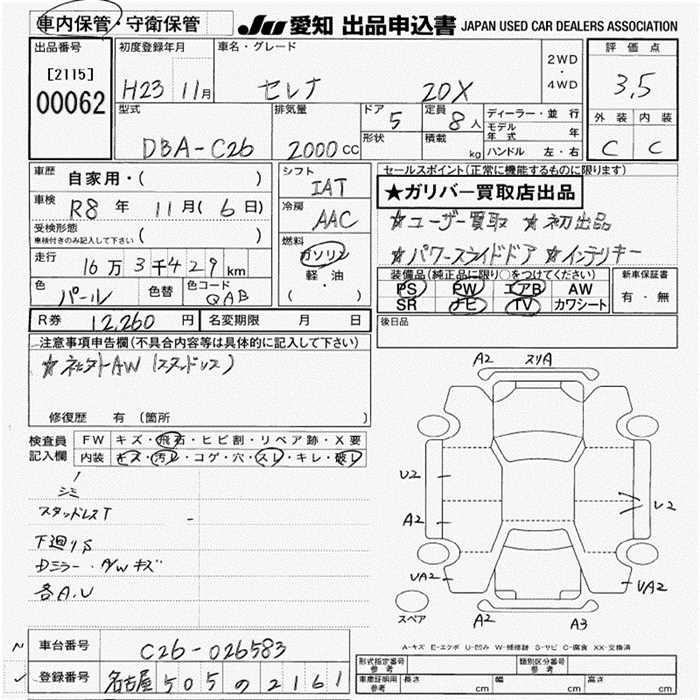 車内保管・守衛保管 JU 愛知 出品申込書 JAPAN USED CAR DEALERS ASSOCIATION
出品番号 初度登録年月 車名・グレード 2WD・4WD 評価点
[2115] 00062 H23 11月 セレナ 20X 3.5
型式 排気量 ドア 5 定員 8人 ディーラー・並行 外装 内装
DBA-C26 2000cc 形状 積載 kg モデル年式 年 C C
ハンドル 左・右
車歴 自家用・( ) シフト IAT セールスポイント(正常に機能するものに限ります)
車検 R8年 11月(6日) 冷房 AAC ★ガリバー買取店出品
受検形態 車検付きのみ記入して下さい ( ) ★ユーザー買取 ★初出品
走行 16万3千429km 燃料 ガソリン ★パワースライドドア ★インテリキー
色 パール 色替 色コード QAB 軽・油 ( ・ )
装備品(純正品に限り○をつけてください) 新車保証書
PS PW エアB AW 有・無
SR ナビ TV カワシート
R券 12,260円 名変期限 月 日 後日品
注意事項申告欄(不具合内容等は具体的に記入して下さい)
★社外AW(スタッドレス)
修復歴 有(箇所 )
検査員 記入欄
FW キズ・飛石・ヒビ割・リペア跡・X要
内装 キズ・汚レ・コゲ・穴・スレ・キレ・破レ
シミ
スタッドレスT
下廻りS
Dミラー・A/Wキズ
各A.U
A2 スリA
U2
A2
U2
UA2 UA2
スペア
A2 A3
A-キズ E-エクボ U-凹み W-補修跡 S-サビ C-腐食 XX-交換済
車台番号 C26-026583
登録番号 名古屋 505 の 2161
型式指定番号 参考 類別区分番号 参考
車庫証明用 参考 長さ cm 幅 cm 高さ cm